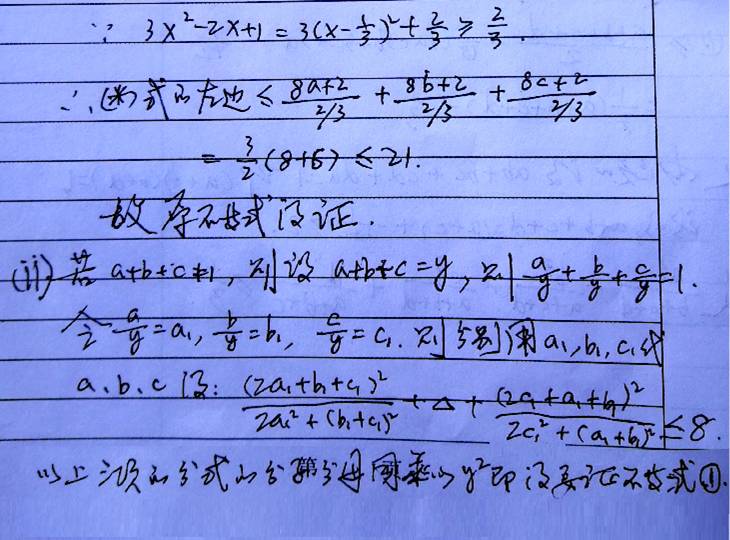 ∵ 3x²-2x+1 = 3(x-1/3)²+2/3 ≥ 2/3.
∴ (※)式的左边 ≤ (8a+2)/(2/3) + (8b+2)/(2/3) + (8c+2)/(2/3)
= 3/2 (8+6) ≤ 21.
故原不等式得证.
(ii) 若 a+b+c≠1, 则设 a+b+c=y, 则 a/y + b/y + c/y = 1.
令 a/y = a₁, b/y = b₁, c/y = c₁. 则分别用 a₁, b₁, c₁代
a、b、c 得: (2a₁+b₁+c₁)²/(2a₁²+(b₁+c₁)²) + △ + (2c₁+a₁+b₁)²/(2c₁²+(a₁+b₁)²) ≤ 8.
以上三项的分式的分子分母同乘以 y² 即得要证不等式①.